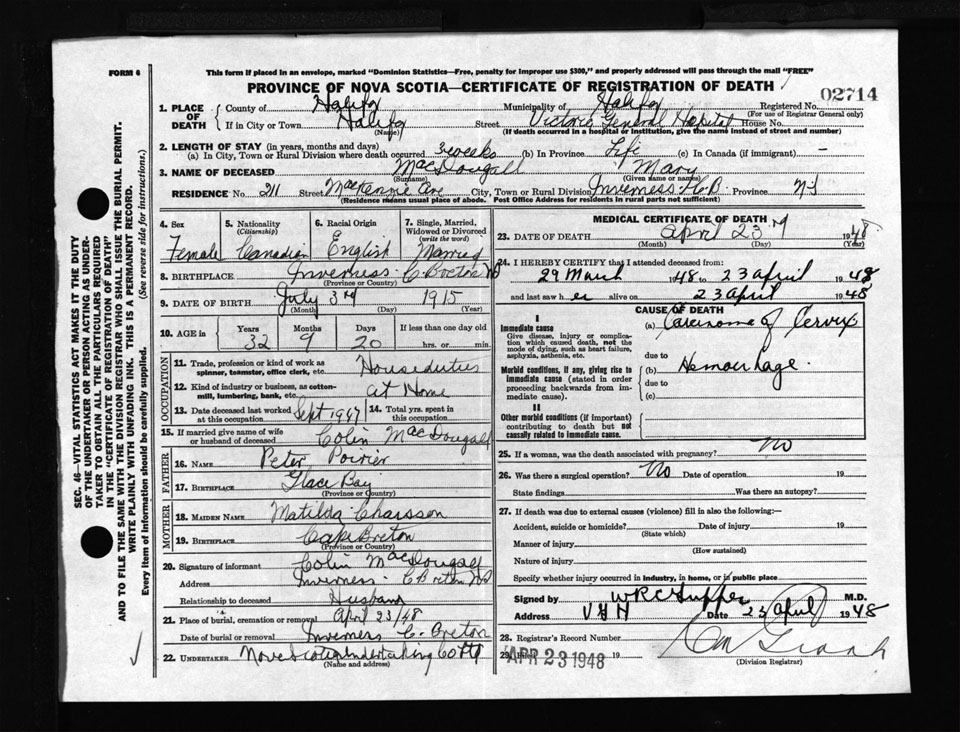 FORM 6
This form if placed in an envelope, marked "Dominion Statistics—Free, penalty for improper use $300," and properly addressed will pass through the mail "FREE"
PROVINCE OF NOVA SCOTIA—CERTIFICATE OF REGISTRATION OF DEATH
02714
1. PLACE OF DEATH
County of Halifax Municipality of Halifax Registered No.
(For use of Registrar General only)
If in City or Town Halifax Street Victoria General Hospital House No.
(Name) (If death occurred in a hospital or institution, give the name instead of street and number)
2. LENGTH OF STAY (in years, months and days)
(a) In City, Town or Rural Division where death occurred 3 weeks (b) In Province Life (c) In Canada (if immigrant) —
3. NAME OF DECEASED MacDougall Mary
(Surname) (Given name or names)
RESIDENCE No. 211 Street MacKennie Ave City, Town or Rural Division Inverness C.B Province N S
(Residence means usual place of abode. Post Office Address for residents in rural parts not sufficient)
4. Sex
Female
5. Nationality (Citizenship)
Canadian
6. Racial Origin
English
7. Single, Married, Widowed or Divorced (write the word)
Married
8. BIRTHPLACE Inverness C Breton NS
(Province or Country)
9. DATE OF BIRTH July 3rd 1915
(Month) (Day) (Year)
10. AGE in Years Months Days If less than one day old
32 9 20 hrs. or min.
OCCUPATION
11. Trade, profession or kind of work as spinner, teamster, office clerk, etc. Houseduties
12. Kind of industry or business, as cotton-mill, lumbering, bank, etc. at Home
13. Date deceased last worked at this occupation Sept 1947 14. Total yrs. spent in this occupation
15. If married give name of wife or husband of deceased Colin MacDougall
FATHER
16. NAME Peter Poirier
17. BIRTHPLACE Glace Bay
(Province or Country)
MOTHER
18. MAIDEN NAME Matilda Chaisson
19. BIRTHPLACE Cape Breton
(Province or Country)
20. Signature of informant Colin MacDougall
Address Inverness C Breton NS
Relationship to deceased Husband
21. Place of burial, cremation or removal April 23/48
Date of burial or removal Inverness C. Breton
22. UNDERTAKER Nova Scotia Undertaking Co Ltd
(Name and address)
MEDICAL CERTIFICATE OF DEATH
23. DATE OF DEATH April 23rd 1948
(Month) (Day) (Year)
24. I HEREBY CERTIFY that I attended deceased from:
29 March 1948 to 23 April 1948
and last saw h er alive on 23 April 1948
CAUSE OF DEATH
I
Immediate cause
Give disease, injury or complication which caused death, not the mode of dying, such as heart failure, asphyxia, asthenia, etc.
(a) Carcinoma of Cervix
due to
Morbid conditions, if any, giving rise to immediate cause (stated in order proceeding backwards from immediate cause).
(b) Hemorrhage
due to
(c)
II
Other morbid conditions (if important) contributing to death but not causally related to immediate cause.
25. If a woman, was the death associated with pregnancy? No
26. Was there a surgical operation? No Date of operation 19
State findings Was there an autopsy?
27. If death was due to external causes (violence) fill in also the following:—
Accident, suicide or homicide? Date of injury 19
(State which)
Manner of injury
(How sustained)
Nature of injury
Specify whether injury occurred in industry, in home, or in public place
Signed by M.D.
Address V G H Date 23 April 1948
28. Registrar's Record Number
APR 23 1948 19
(Division Registrar)
SEC. 46—VITAL STATISTICS ACT MAKES IT THE DUTY
OF THE UNDERTAKER OR PERSON ACTING AS UNDER-
TAKER TO OBTAIN ALL THE PARTICULARS REQUIRED
IN THE "CERTIFICATE OF REGISTRATION OF DEATH"
AND TO FILE THE SAME WITH THE DIVISION REGISTRAR WHO SHALL ISSUE THE BURIAL PERMIT.
WRITE PLAINLY WITH UNFADING INK. THIS IS A PERMANENT RECORD.
Every item of Information should be carefully supplied. (See reverse side for instructions.)